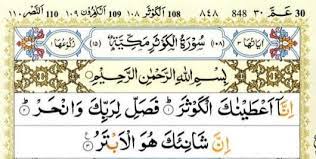 30 عم ٣٠ 848 ٨٤٨ 108 الكوثر ١٠٨ 109 الكٰفرون ١٠٩ 110 النصر ١١٠
اٰيَاتُهَا ٣ (١٠٨) سُوْرَةُ الْكَوْثَرِ مَكِّيَّةٌ (١٥) رُكُوْعُهَا ١
بِسْمِ اللّٰهِ الرَّحْمٰنِ الرَّحِيْمِ
اِنَّاۤ اَعْطَيْنٰكَ الْكَوْثَرَ ؕ ١ فَصَلِّ لِرَبِّكَ وَانْحَرْ ؕ ٢
اِنَّ شَانِئَكَ هُوَ الْاَبْتَرُ ٣